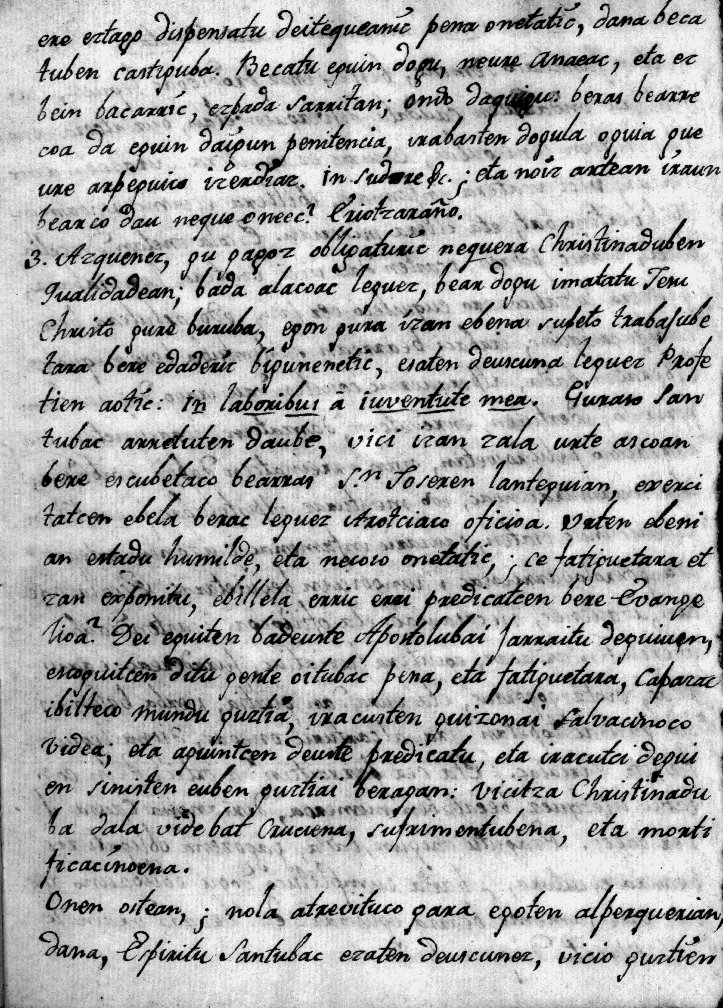 ere eztago dispensatu deitequeanic pena onetatic, dana beca
tuben castiguba. Becatu eguin dogu, neure Anaeac, eta ez
bein bacarric, ezbada sarritan; ondo daquigu: beras bearre
coa da eguin daigun penitencia, irabasten dogula oguia gue
ure arpeguico izerdiaz. In sudore &c.; eta noiz artean iraun
bearco dau neque oneec? Eriotzaraño.
3. Azquenez, gu gagoz obligaturic nequera Christinaduben
qualidadean; bada alacoac leguez, bear dogu imatatu Jesu
Christo gure buruba, egon gura izan ebena sugeto trabajube
tara bere edaderic bigunenetic, esaten deuscuna leguez Profe
tien aotic: in laboribus à iuventute mea. Guraso San
tubac arretuten daube, vici izan zala urte ascoan
bere escubetaco bearraz Sn. Joseren lanteguian, exerci
tatcen ebela berac leguez Arotciaco oficioa. Urten ebeni
an estadu humilde, eta necoso onetatic, ¿ ce fatiguetara et
zan exponitu, ebillela, erric erri predicatcen bere Evange
lioa? Dei eguiten badeuste Apostolubai jarraitu deguiuen,
escoguitcen ditu gente oitubac pena, eta fatiguetara, Capazac
ibilteco mundu guztia, iracusten guizonai salvacinoco
videa; eta aguintcen deuste predicatu, eta iracutci degui
en sinisten euben guztiai beragan: vicitza Christinadu
ba dala vide bat Cruciena, sufrimentubena, eta morti
ficacinoena.
Onen ostean, ¿ nola atrevituco gara egoten alperquerian,
dana, Espiritu Santubac ezaten deuscunez, vicio guztien